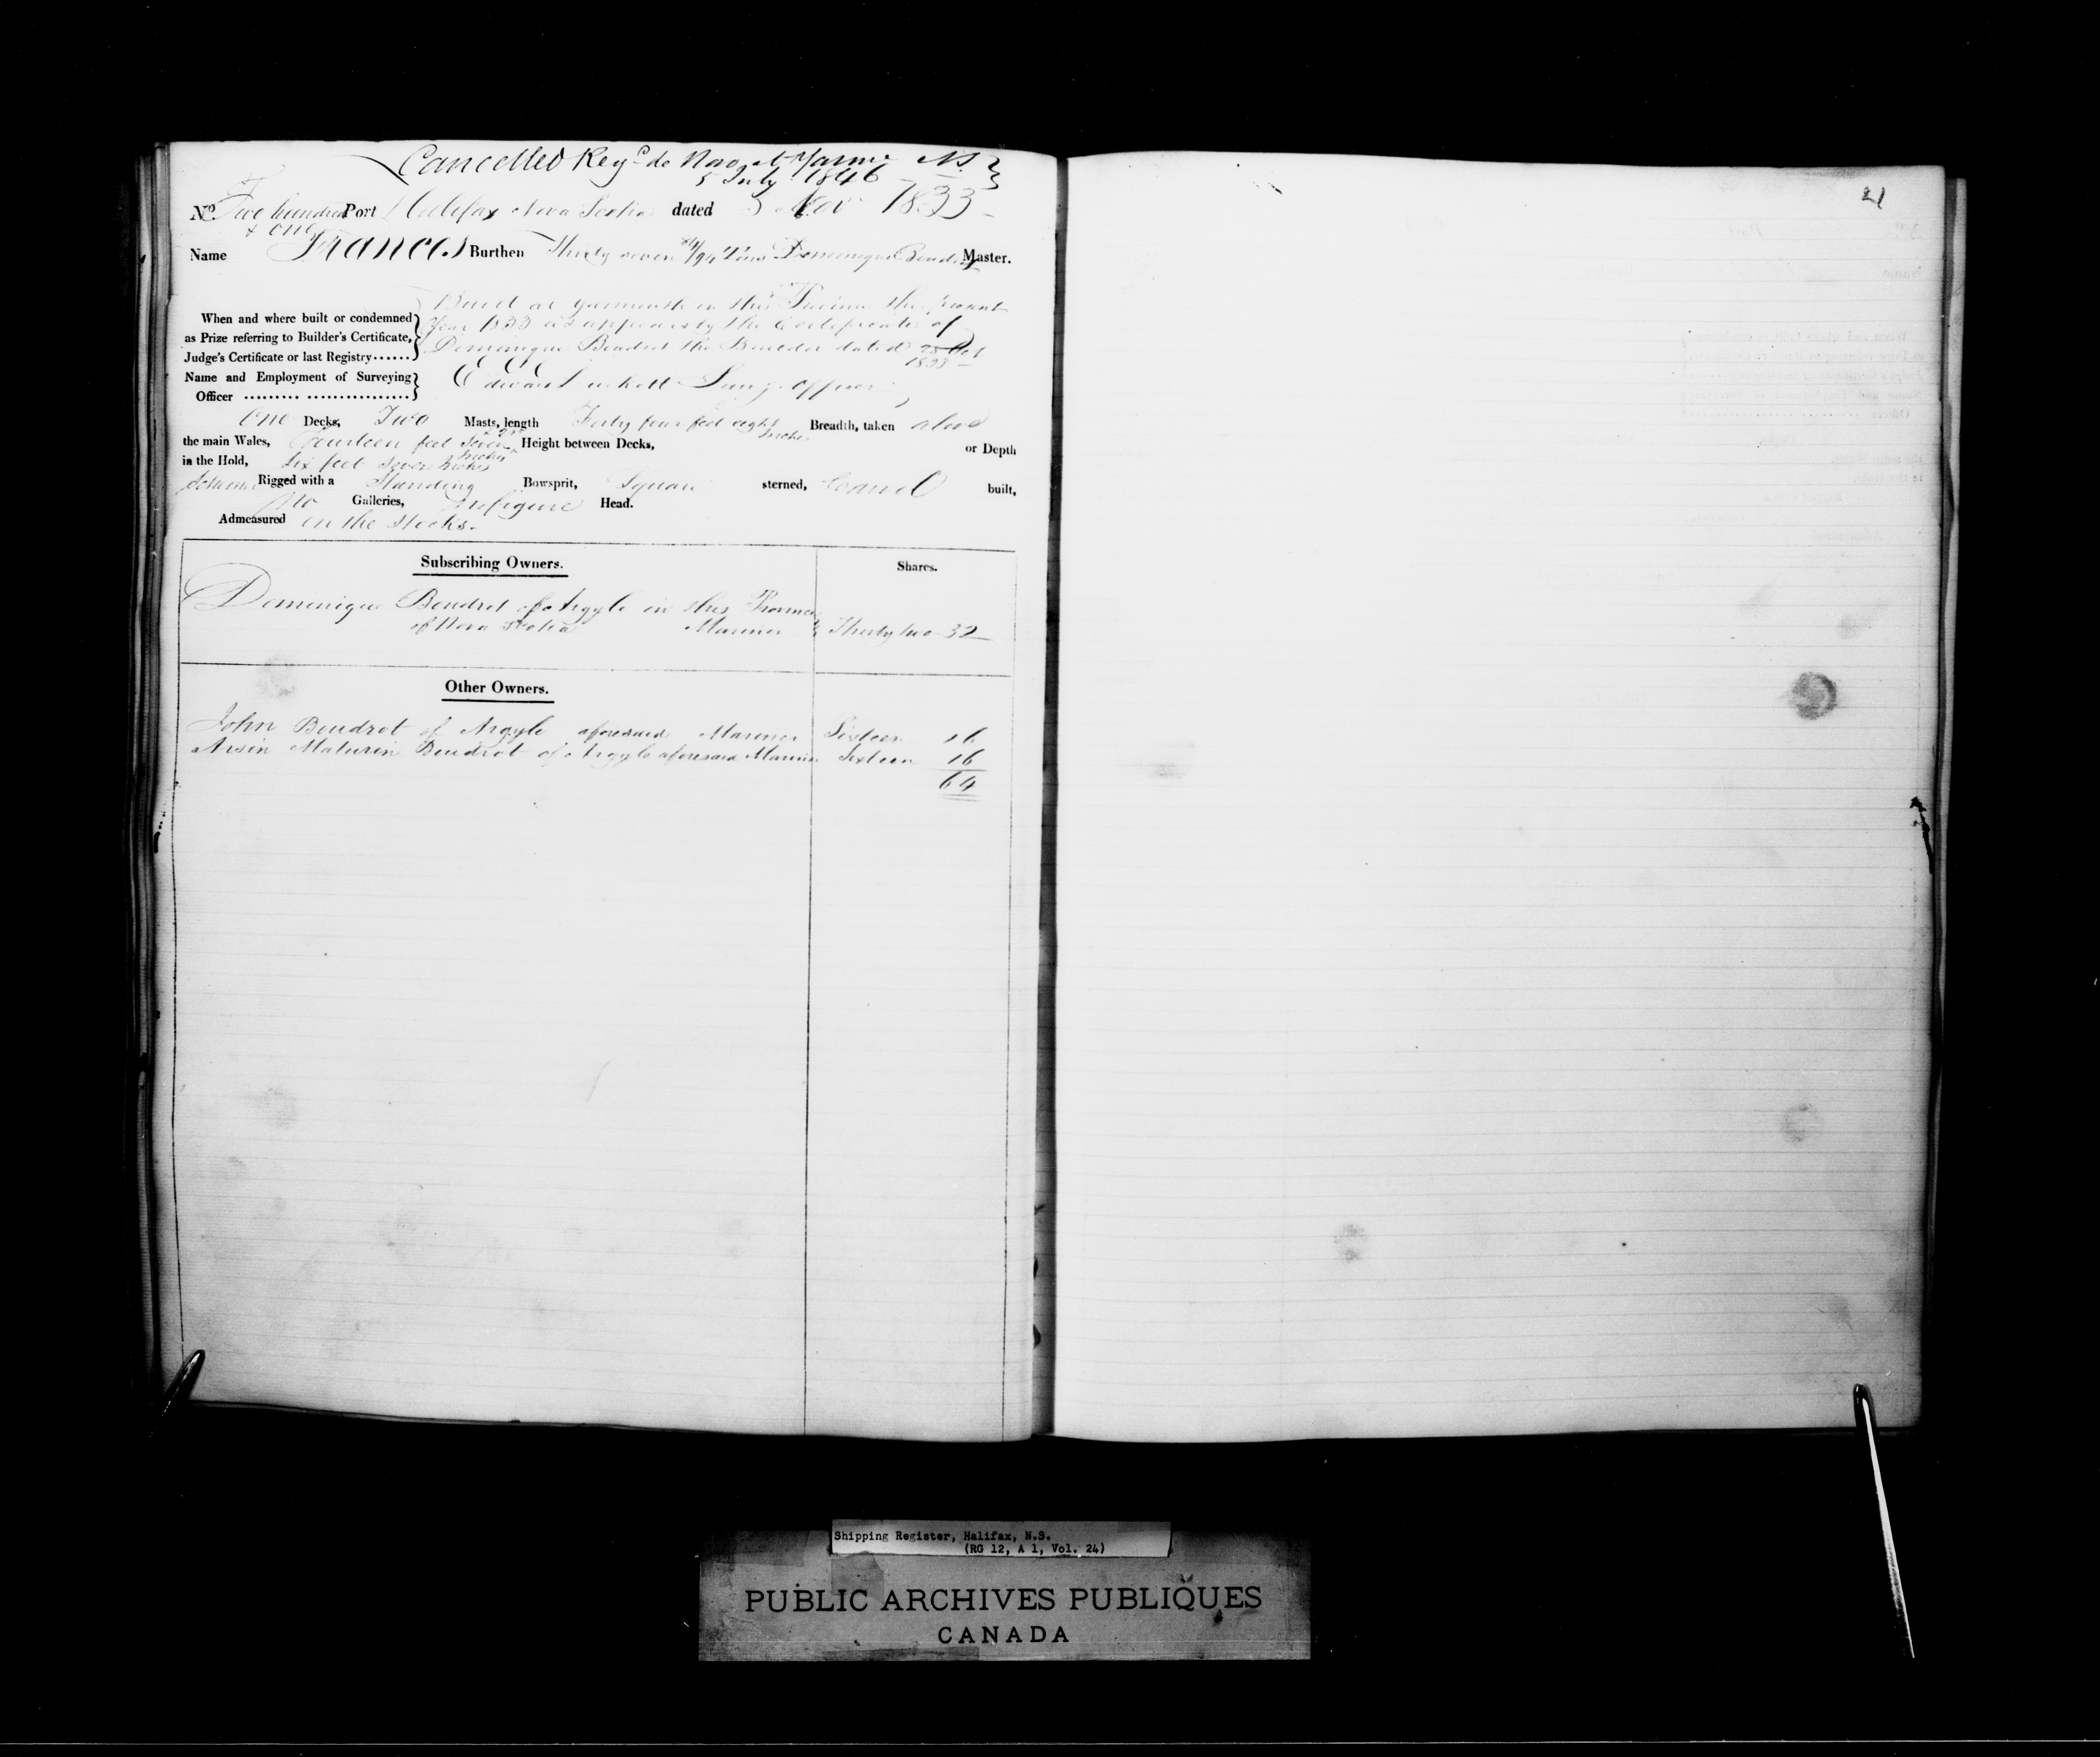 Cancelled Reg.d de Novo at Yarmo NS
5 July 1846
21
No. Two hundred Port Halifax Nova Scotia dated 5 Nov 1833
& one
Name Frances Burthen Thirty seven 84/94 Tons Dominique Boudrot Master.
When and where built or condemned as Prize referring to Builder's Certificate, Judge's Certificate or last Registry......
Built at Yarmouth in this Province the present
Year 1833 as appears by the Certificate of
Dominique Boudrot the Builder dated 25 Oct
1833
Name and Employment of Surveying Officer ......... .................
Edward Surv.g officer
One Decks, Two Masts, length Forty four feet eight Inches Breadth, taken above
the main Wales, Fourteen feet Seven Inches Height between Decks, or Depth
in the Hold, Six feet Seven Inches
Schooner Rigged with a Standing Bowsprit, Square sterned, Carvel built,
No Galleries, no figure Head.
Admeasured on the Stocks.
Subscribing Owners. Shares.
Dominique Boudrot of Argyle in this Province
of Nova Scotia Mariner Thirty two 32
Other Owners.
John Boudrot of Argyle aforesaid Mariner Sixteen 16
Maturin Boudrot of Argyle aforesaid Mariner Sixteen 16
64
Shipping Register, Halifax, N.S.
(RG 12, A 1, Vol. 24)
PUBLIC ARCHIVES PUBLIQUES
CANADA